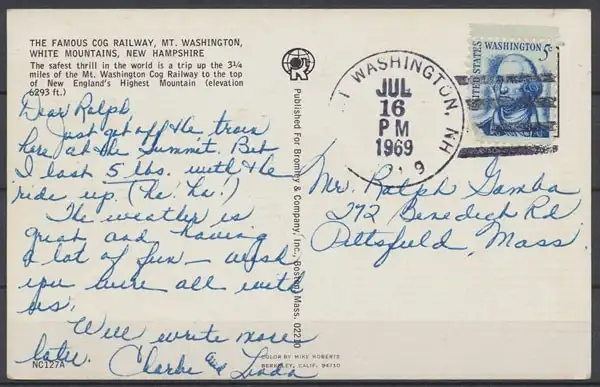 THE FAMOUS COG RAILWAY, MT. WASHINGTON,
WHITE MOUNTAINS, NEW HAMPSHIRE
The safest thrill in the world is a trip up the 3¼
miles of the Mt. Washington Cog Railway to the top
of New England's Highest Mountain (elevation
6293 ft.)
Dear Ralph
Just got off the train
here at the Summit. Bet
I lost 5 lbs. with the
ride up. (he! ha!)
The weather is
great and having
a lot of fun – wish
you were all with
us.
Will write more
later. Charlie and Linda
NC127A
Published For Bromley & Company, Inc., Boston, Mass. 02210
COLOR BY MIKE ROBERTS
BERKELEY, CALIF. 94710
T WASHINGTON, NH
JUL
16
PM
1969
UNITED STATES
WASHINGTON 5c
Mr. Ralph Gamba
272 Benedigh Rd
Pittsfield, Mass